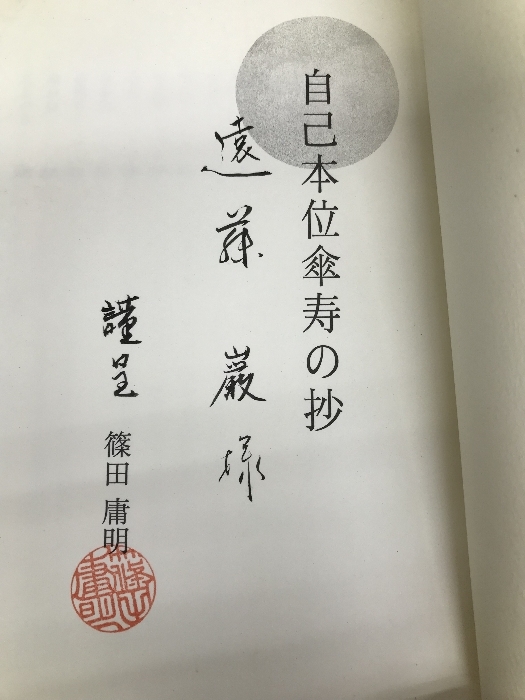 自己本位傘寿の抄
遠藤 巖 様
謹呈
篠田 庸明
篠田庸明